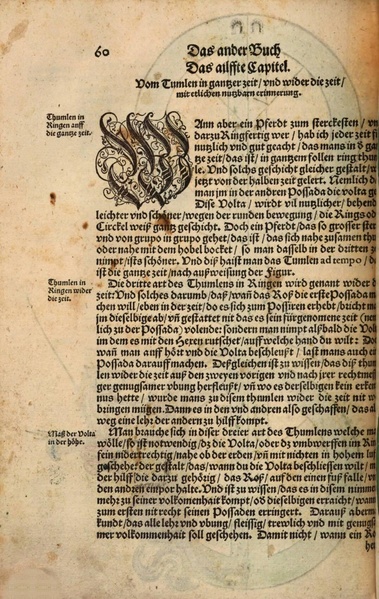 60
Das ander Buch
Das ailffte Capitel.
Vom Tumlen in gantzer zeit / vnd wider die zeit /
mit etlichen nutzbarn erinnerung.
Thumlen in
Ringen auff
die gantze zeit.
WAnn aber ein Pferdt zum sterckesten / vn
darzu Ringfertig wer / hab ich jeder zeit f
nutzlich vnd gut geacht / das mans in d̕ gan
tze zeit / das ist / in gantzem follen ring thu
le. Vnd solchs geschicht gleicher gestalt /
jetzt von der halben zeit gelert. Nemlich d
man jm in der andren Possada die volta ge
Dise Volta / wirdt vil nutzlicher / behend
leichter vnd schöner / wegen der runden bewegung / die Rings od
Circkel weiß gantz geschicht. Doch ein Pferdt / das so grosser ster
vnd von grupo in grupo gehet / das ist / das sich nahe zusamen thu
oder nahe mit dem hobel bocket / so man dasselb in der dritten z
nimpt / ists schöner. Vnd diß haist man das Tumlen ad tempo / d
ist die gantze zeit / nach außweisung der Figur.
Thumlen in
Ringen wider
die zeit.
Die dritte art des Thumlens in Ringen wird genant wider d
zeit: Vnd solches darumb / daß / wañ das Roß die erste Possada m
chen will / eben in der zeit / do es sich zum Posiren erhebt / briche ma
jm dieselbig ab / vñ gestattet nit das es sein fürgenomene zeit (nen
lich zu der Possada) volende: sondern man nimpt alßbald die Vol
im dem es mit den Hexen rutschet / auff welche hand du wilt: Do
wañ man auff hört vnd die Volta beschleußt / last mans auch ein
Possada darauff machen. Deßgleichen ist zu wissen / das diß thum
len wider die zeit auß den zweyen vorigen vnd nach jrer rechtne
ger genugsamer vbung herfleußt / vñ wo es derselbigen kein erken
nus hette / wurde mans zu disem thumlen wider die zeit nit w
bringen mügen. Dann es in den vnd andren also geschaffen / das al
weg eine lehr der andern zu hilff kompt.
Maß der Volta
in der höhe.
Man brauche sich in diser dreier art des Thumlens welche ma
wölle / so ist notwendig / dz die Volta / oder dz vmbwerffen im Ri
fein nidertrechtig / nahe ob der erden / vñ mit nichten in hohem luf
geschehe: der gestalt / das / wann du die Volta beschliessen wilt / m
der hilff die darzu gehörig / das Roß / auff den einen fuß falle / vn
den andren empor halte. Vnd ist zu wissen / das es in disem nimme
mehr zu seiner volkomenhait kompt / ob dieselbigen erraicht / wann
zum ersten nit recht seinen Possaden erringert. Darauß aberm
kundt / das alle lehr vnd vbung / fleissig / trewlich vnd mit genugsa
mer volkommenhait soll geschehen. Damit nicht / wann ein Ro
he